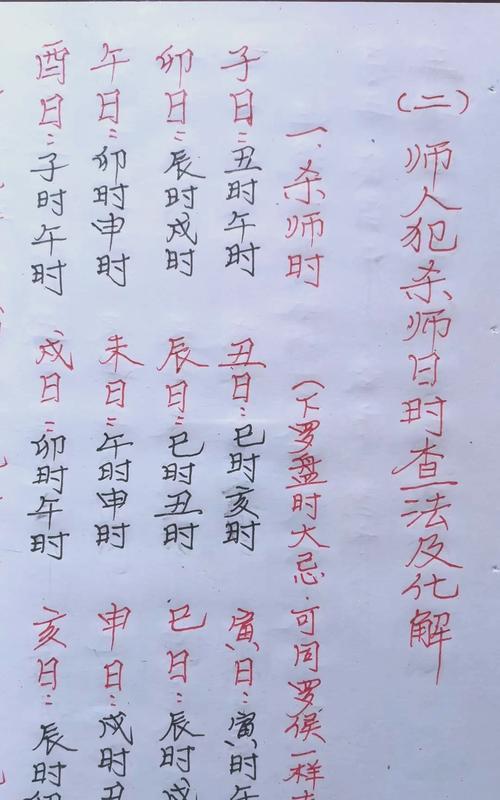 （二）师人犯杀师日时查法及化解
一、杀师时（下罗盘时大忌·可同罗侯一样
子日：丑时午时 丑日：巳时亥时 寅日：寅时午
卯日：辰时戌时 辰日：巳时丑时 巳日：辰时戌
午日：卯时申时 未日：午时申时 申日：戌时丑
酉日：子时午时 戌日：卯时午时 亥日：辰时卯